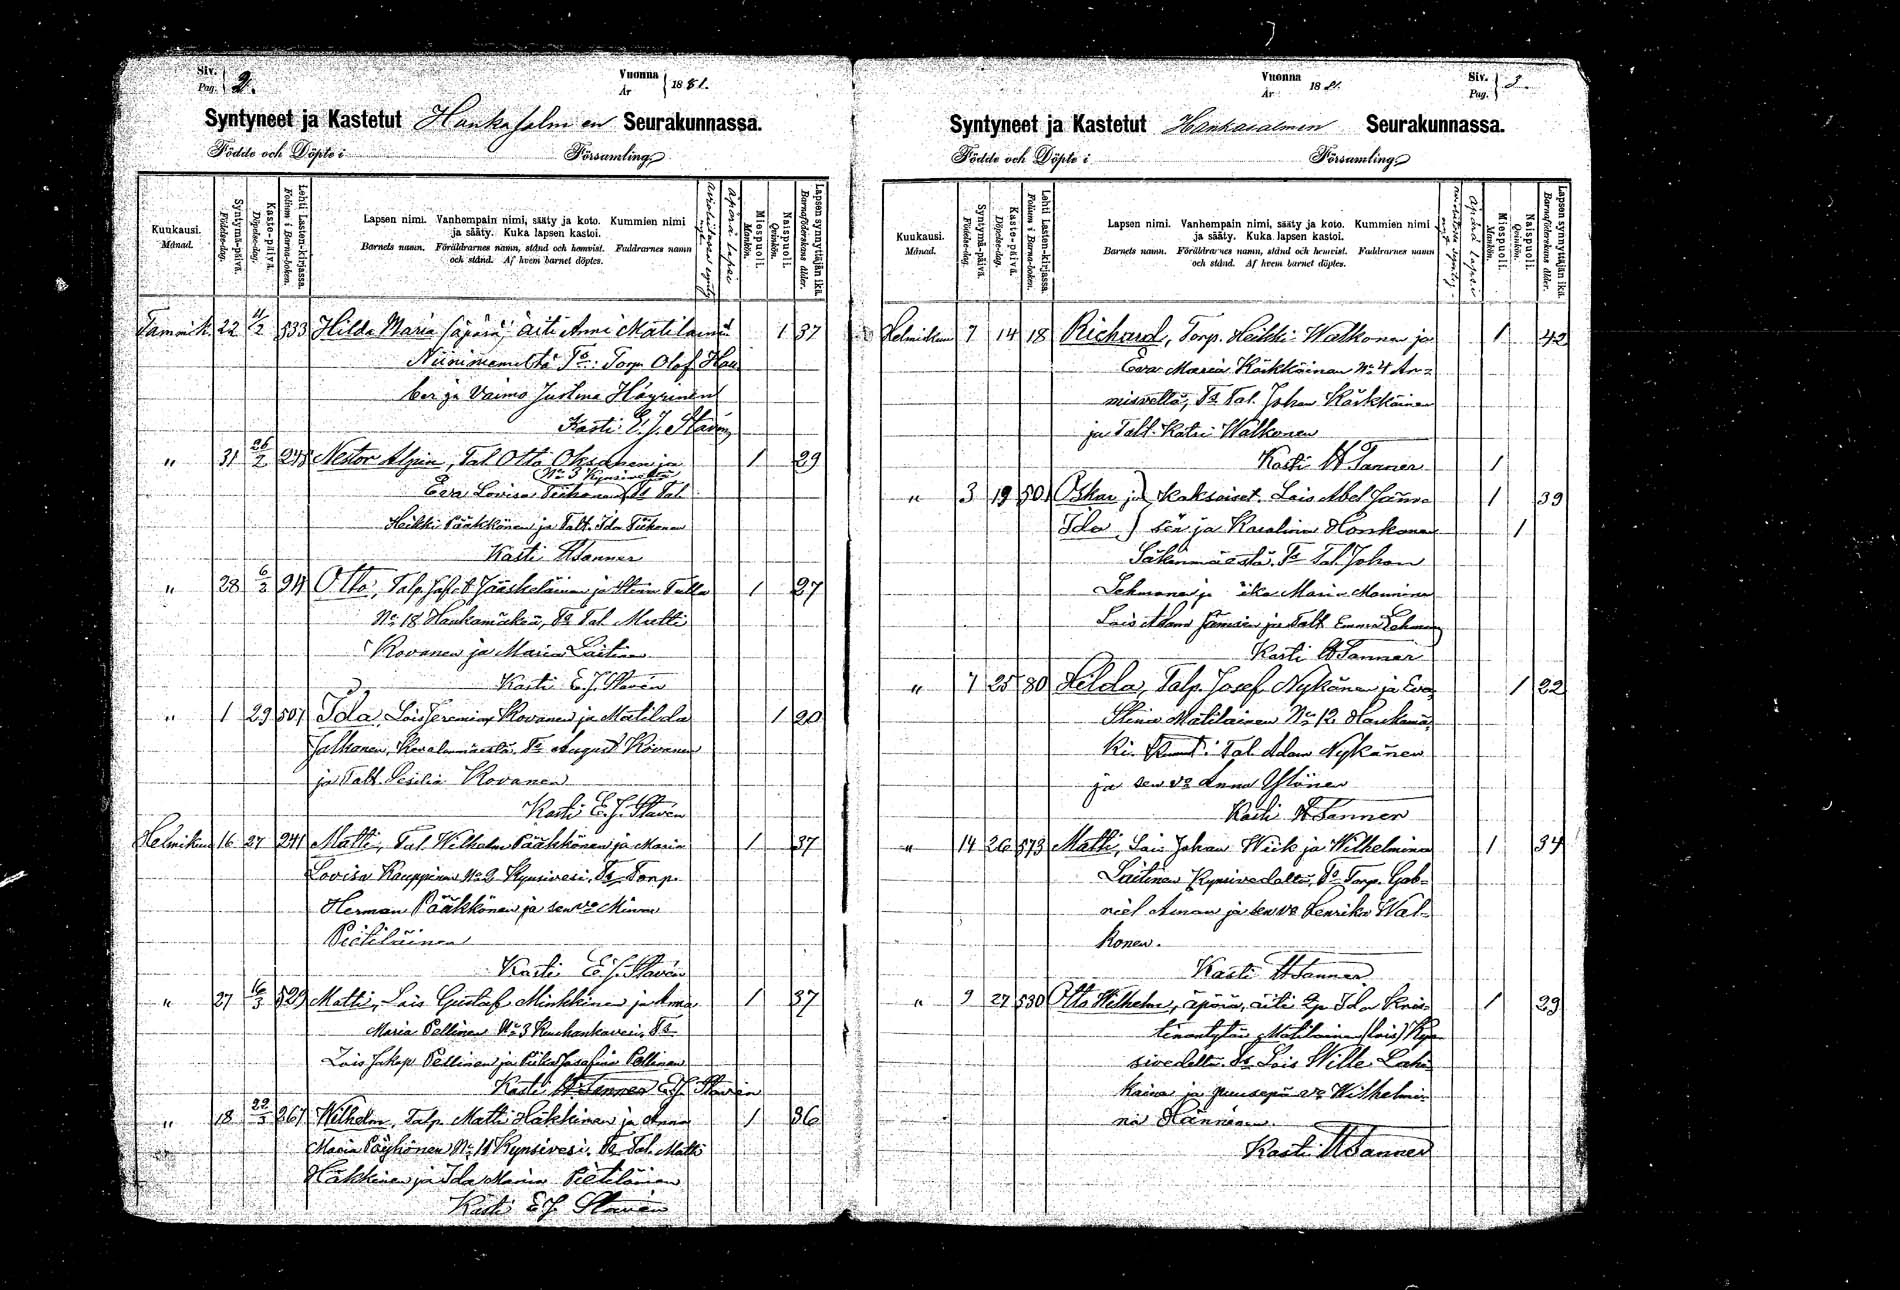 Siv. Pag. 2.
Vuonna År 1881.
Syntyneet ja Kastetut Hankasalmen Seurakunnassa.
Födde och Döpte i Församling.
Kuukausi. Månad.
Syntymä-päivä. Födelse-dag.
Kaste-päivä. Döpelse-dag.
Lehti Lasten-kirjassa. Folium i Barna-boken.
Lapsen nimi. Vanhempain nimi, sääty ja koto. Kummien nimi
ja sääty. Kuka lapsen kastoi.
Barnets namn. Föräldrarnes namn, stånd och hemvist. Faddrarnes namn
och stånd. Af hvem barnet döptes.
Äpärä lapsi
Miespuoli. Mankön.
Naispuoli. Qvinkön.
Lapsen synnyttäjän ikä. Barnaföderskans ålder.
Tammik. 22 4/2 533 Hilda Maria (äpärä) äiti Anni Matilainen 1 37
Niinimemeltä Ts: Torp. Olof Hau
ber ja Vaimo Justina Häyrinen
Kasti E. J. Stavén
" 31 26/2 248 Nestor Alpin, Tal. Otto Oksanen ja 1 29
No 3 Kynsivettä
Eva Lovisa Tiihonen Ts Tal.
Heikki Pääkkönen ja Talt. Ida Tiihonen
Kasti A Tanner
" 28 6/2 94 Otto, Talp. Jaskeläinen ja Stina Tulla 1 27
No 18 Hankamäkeä, Ts Tal. Matti
Kovanen ja Maria Laitinen
Kasti E. J. Stavén
" 1 29 507 Ida, Lois Jeremias Kovanen ja Matilda 1 20
Jalkanen, Ts August Kovanen
ja Talt. Cesilia Kovanen
Kasti E. J. Stavén
Helmikuu 16 27 241 Matti, Tal. Wilhelm Pääkkönen ja Maria 1 37
Lovisa Kauppinen No 2 Kynsivesi, Ts Torp.
Herman Pääkkönen ja sen vo Minna
Pietiläinen
Kasti E. J. Stavén
" 27 16/3 529 Matti, Lois Gustaf Minkkinen ja Anna 1 37
Maria Pellinen No 3 Kuuhankavesi, Ts
Lois Jakop Pellinen ja Piika Josefina Pellinen
Kasti A Tanner E. J. Stavén
" 18 22/3 267 Wilhelm, Talp. Matti Häkkinen ja Anna 1 36
Maria Pöyhönen No 11 Kynsivesi, Ts Tal. Matti
Häkkinen ja Ida Maria Pietiläinen
Kasti E J Stavén
Vuonna År 1881.
Siv. Pag. 3.
Syntyneet ja Kastetut Hankasalmen Seurakunnassa.
Födde och Döpte i Församling.
Kuukausi. Månad.
Syntymä-päivä. Födelse-dag.
Kaste-päivä. Döpelse-dag.
Lehti Lasten-kirjassa. Folium i Barna-boken.
Lapsen nimi. Vanhempain nimi, sääty ja koto. Kummien nimi
ja sääty. Kuka lapsen kastoi.
Barnets namn. Föräldrarnes namn, stånd och hemvist. Faddrarnes namn
och stånd. Af hvem barnet döptes.
Äpärä lapsi
Miespuoli. Mankön.
Naispuoli. Qvinkön.
Lapsen synnyttäjän ikä. Barnaföderskans ålder.
Helmikuu 7 14 18 Richard, Torp. Heikki Walkonen ja 1 42
Eva Maria Kärkkäinen No 4 Ar=
misveltä, Ts Tal. Johan Kärkkäinen
ja Talt. Katri Walkonen
Kasti A Tanner 1
" 3 19 501 Oskar ja Kaksoiset. Lois Abel Jäm= 1 39
Ida sén ja Karolina Honkonen 1
Säkinmäestä, Ts Tal. Johan
Lehmonen ja Maria Manninen
Lois Adam Jämsén ja Talt. Emma Lehmonen
Kasti A Tanner
" 7 25 80 Hilda, Talp. Josef Nykänen ja Eva 1 22
Stina Matilainen No 12 Hankamä=
ki. Kumit: Tal. Adam Nykänen
ja sen vo Anna Ylönen
Kasti A Tanner
" 14 26 573 Matti, Lois Johan Wiik ja Wilhelmina 1 34
Laitinen Kynsivedeltä, Ts Torp. Gab=
riel Aman ja sen vo Henrika Wal=
konen.
Kasti A Tanner
" 9 27 530 Otto Wilhelm, äpärä, äiti Ida Kris= 1 29
tinantytär Matilainen (lois) Kyn
sivedeltä. Ts Lois Wille Laho
kainen ja puusepä vo Wilhelmi=
na Hänninen.
Kasti A Tanner